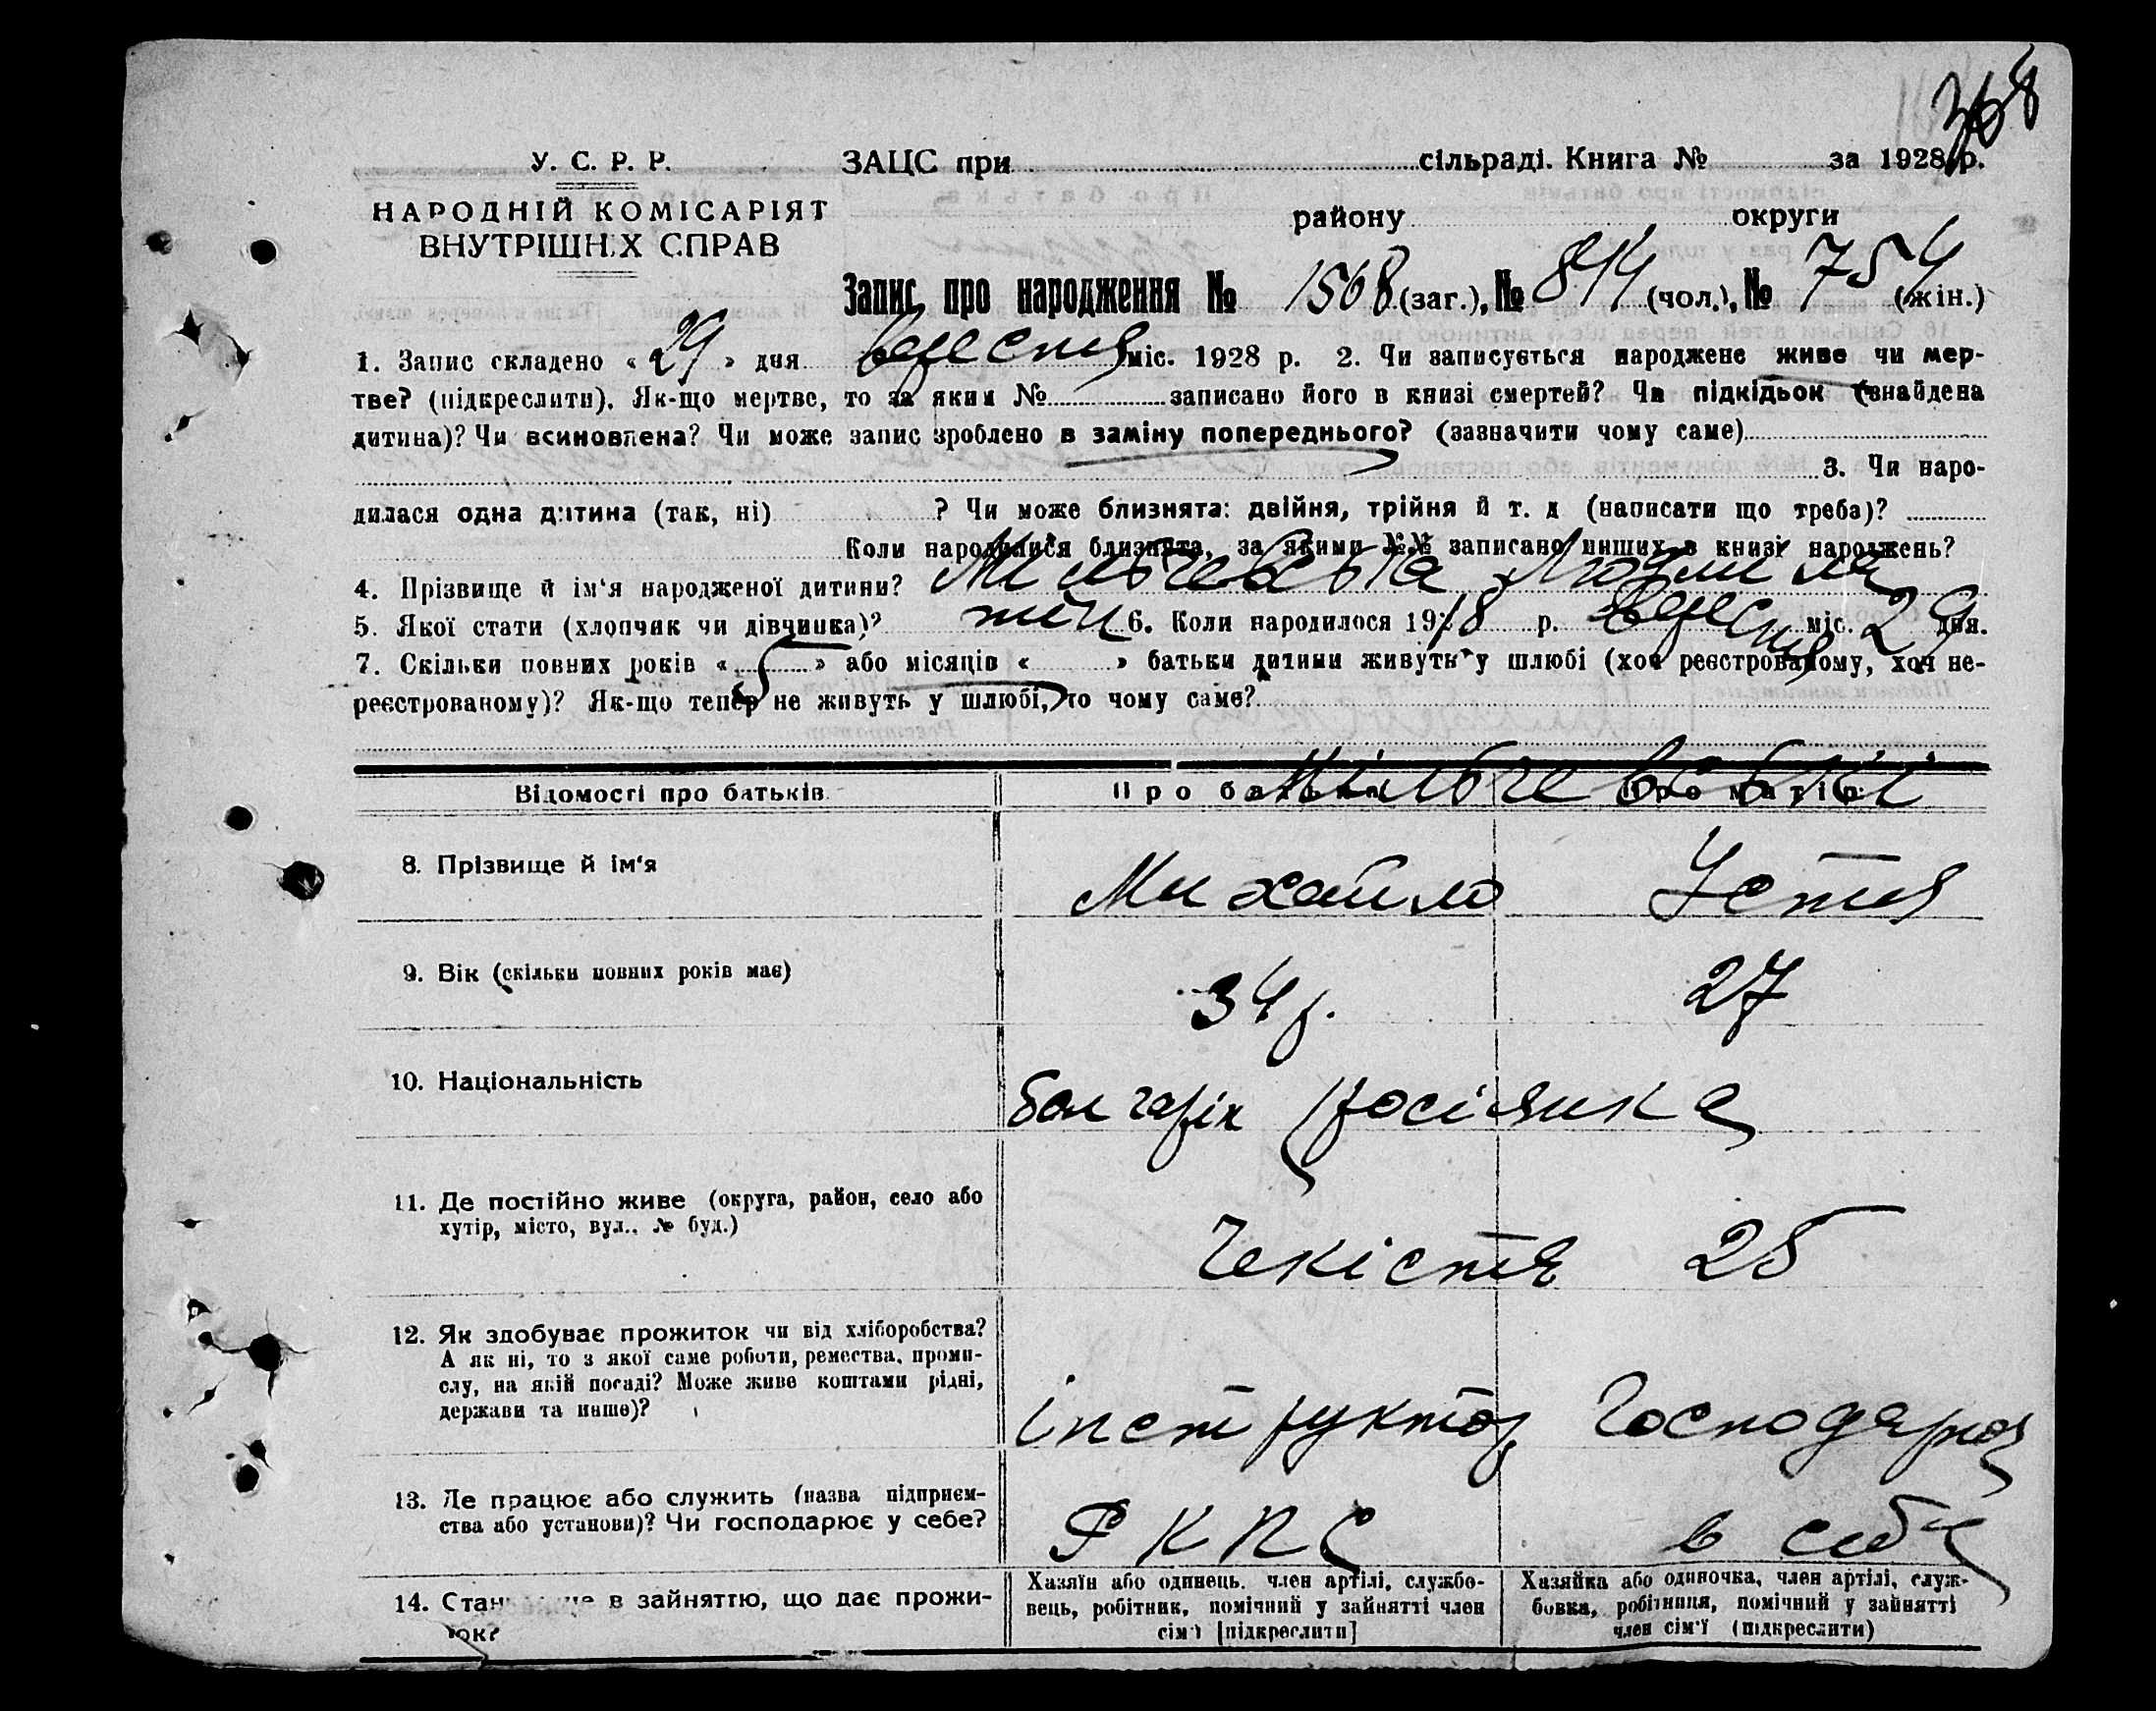 368
У. С. Р. Р. ЗАЦС при сільраді. Книга № за 1928 р.
НАРОДНІЙ КОМІСАРІЯТ району округи
ВНУТРІШНІХ СПРАВ
Запис про народження № 1568 (заг.), № 814 (чол.), № 754 (жін.)
1. Запис складено « 29 » дня вересня міс. 1928 р. 2. Чи записується народжене живе чи мер-
тве? (підкреслити). Як-що мертве, то за яким № записано його в книзі смертей? Чи підкідьок (знайдена
дитина)? Чи всиновлена? Чи може запис зроблено в заміну попереднього? (зазначити чому саме)
3. Чи наро-
дилася одна дитина (так, ні) ? Чи може близнята: двійня, трійня й т. д (написати що треба)?
Коли народилися близнята, за якими №№ записано инших в книзі народжень?
4. Прізвище й ім'я народженої дитини? Людмила
5. Якої стати (хлопчик чи дівчинка)? жін 6. Коли народилося 1928 р. вересня міс. 29 дня.
7. Скільки повних років « 5 » або місяців « » батьки дитини живуть у шлюбі (хоч реєстрованому, хоч не-
реєстрованому)? Як-що тепер не живуть у шлюбі, то чому саме?
Відомості про батьків Про батька Про матір
8. Прізвище й ім'я Михайло Устя
9. Вік (скільки повних років має) 34 р. 27
10. Національність болгарін росіянка
11. Де постійно живе (округа, район, село або
хутір, місто, вул., № буд.) Чекістів 25
12. Як здобуває прожиток чи від хліборобства?
А як ні, то з якої саме роботи, ремества, проми-
слу, на якій посаді? Може живе коштами рідні,
держави та инше)? інструктор Господарює
13. Де працює або служить (назва підприєм-
ства або установи)? Чи господарює у себе? Р К П С в себе
14. Становище в зайняттю, що дає прожи-
ток?
Хазяїн або одинець, член артілі, службо-
вець, робітник, помічний у зайнятті член
сім'ї [підкреслити]
Хазяйка або одиночка, член артілі, служ-
бовка, робітниця, помічний у зайнятті
член сім'ї (підкреслити)